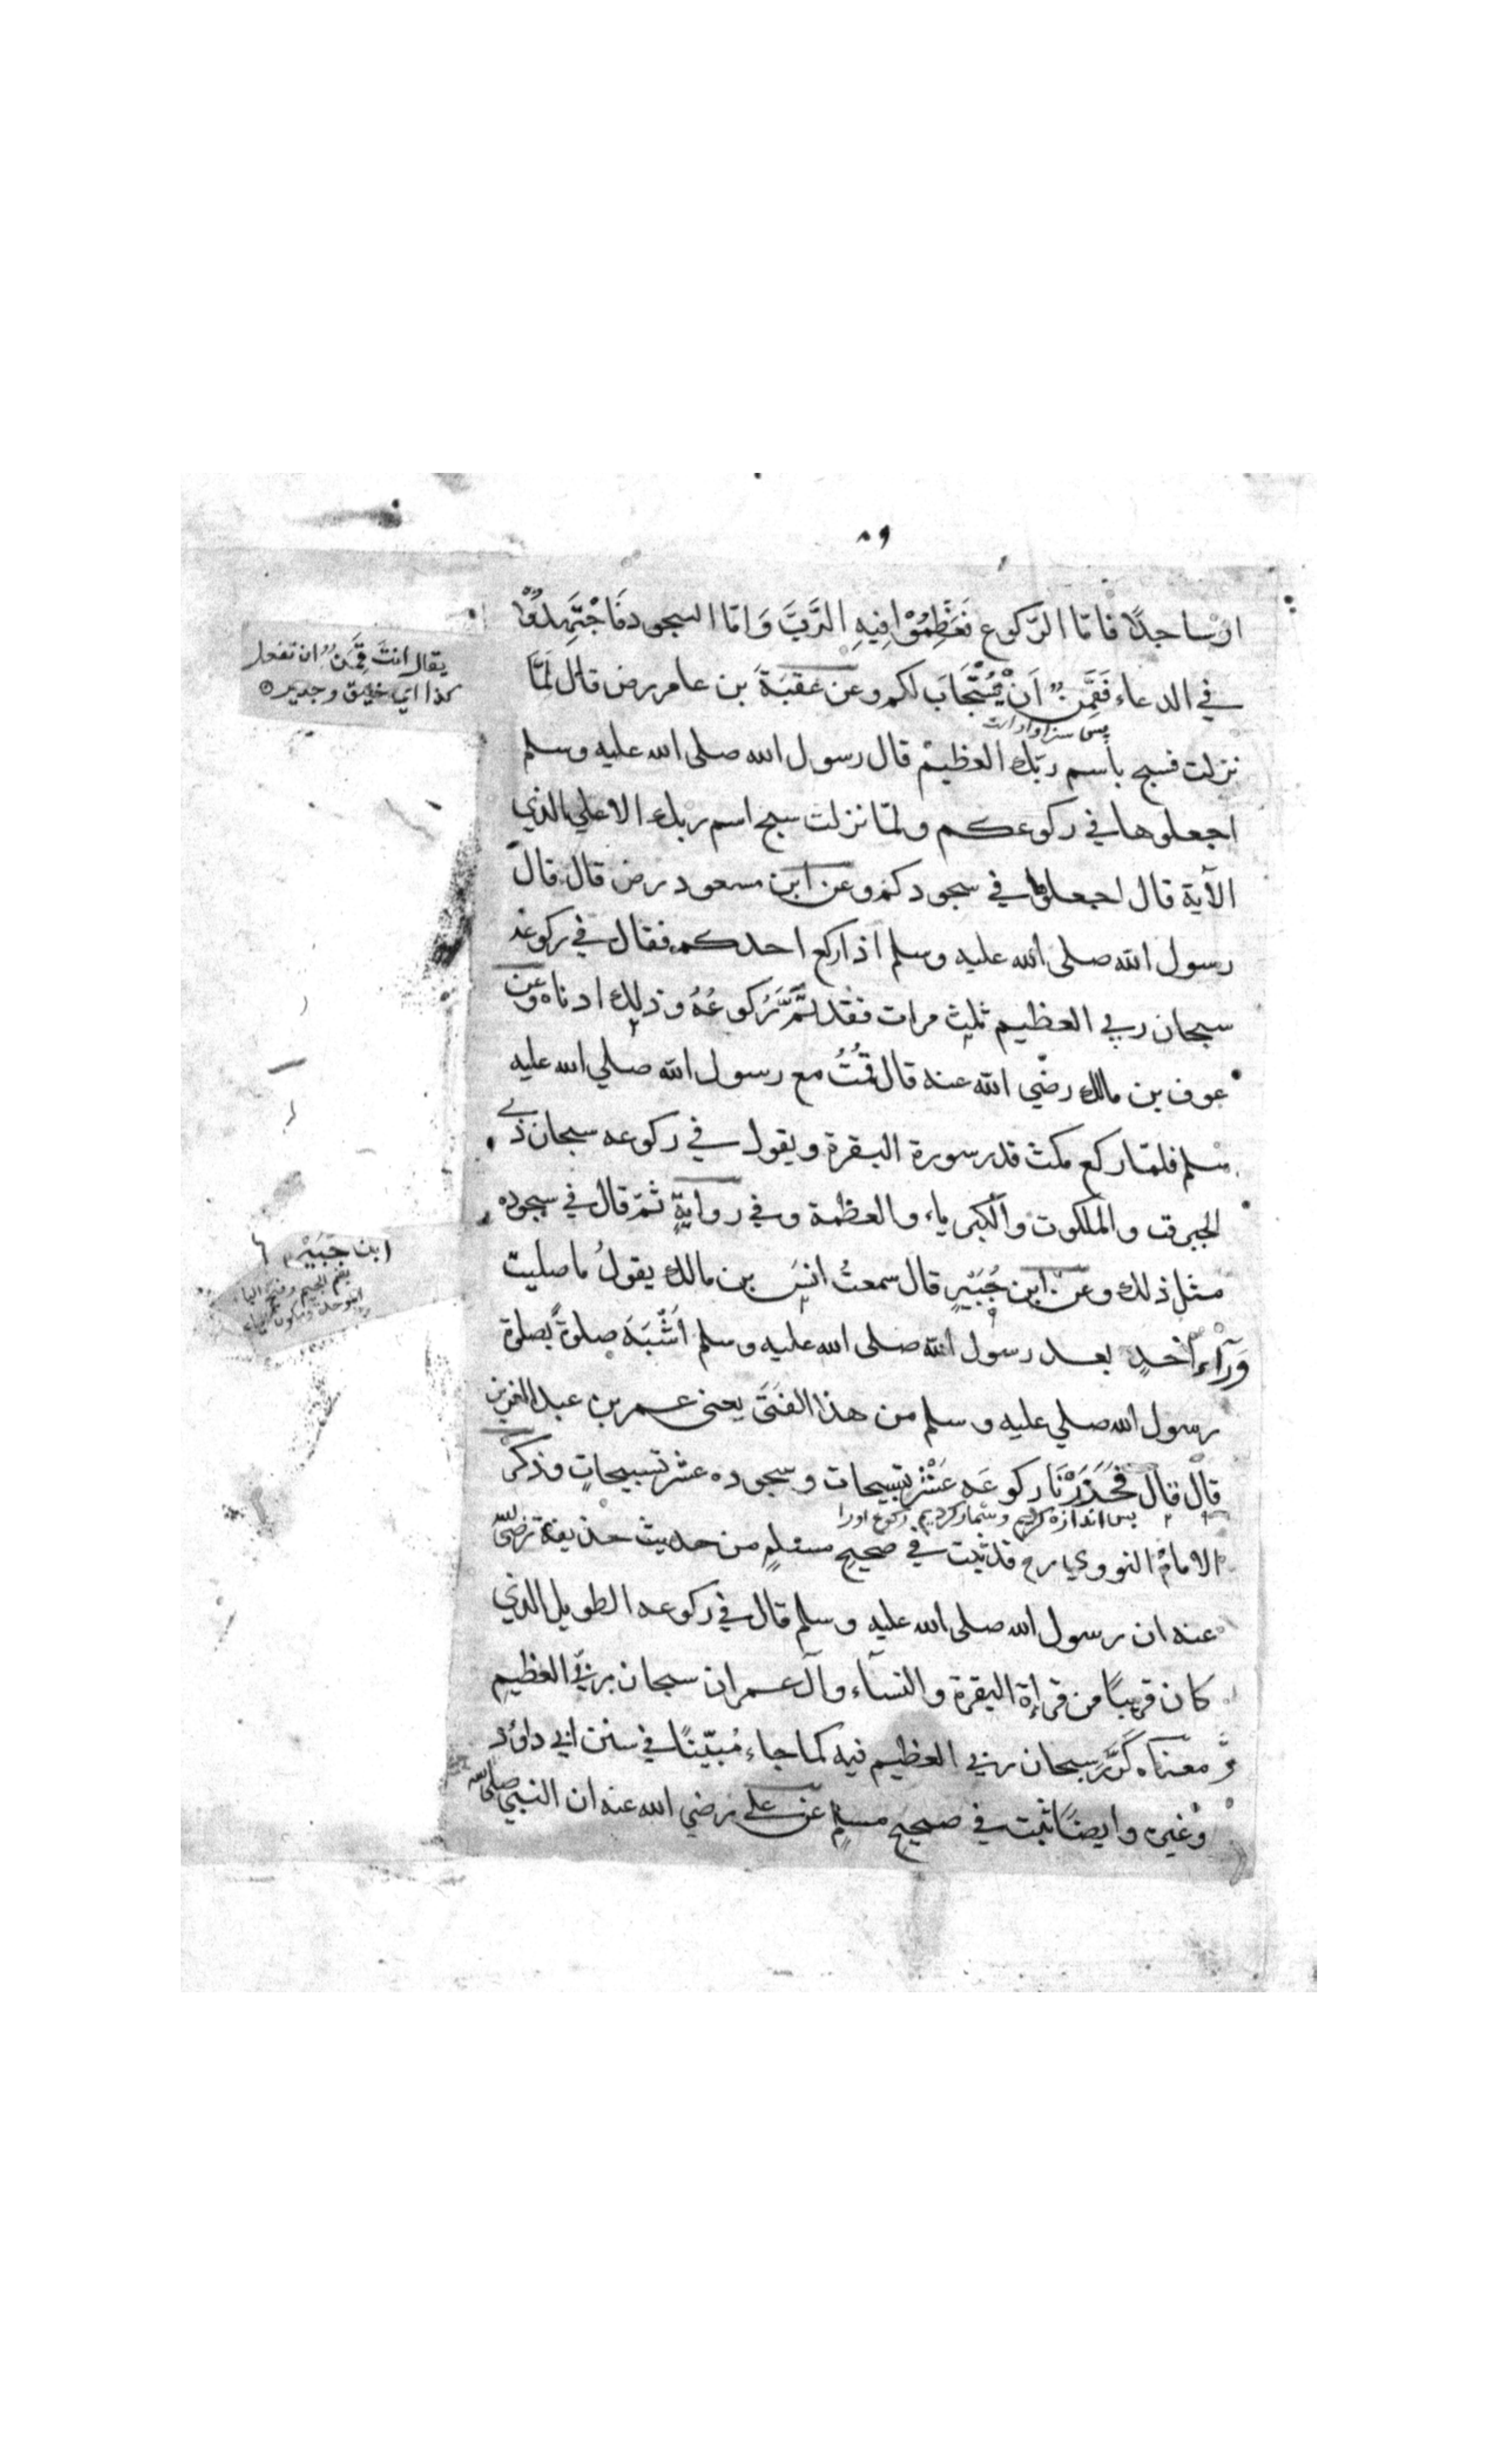 ٨٩
او ساجدًا فاما الرّكوع فَعَظِّمُوْا فِيْهِ الرَّبَّ وَ امّا السجود فَاجْتَهِدُوْا
في الدعاء فَقَمَِنٌ اَنْ يُسْتَجَابَ لكم وعن عُقبَةَ بن عامر رض قال لَمَّا
پس سزاوار است
نزلت فسبح باسم ربّك العظيم قال رسول الله صلى الله عليه وسلم
اجعلوها في ركوعكم ولمّا نزلت سبح اسم ربك الاعلي الذي
الآية قال اجعلوها في سجودكم وعن ابن مسعود رض قال قال
رسول الله صلى الله عليه وسلم اذا ركع احدكم فقال في ركوعه
سبحان ربي العظيم ثلث مرات فقد تَمَّ رُكوعُهُ وذلك ادناه وعن
عوف بن مالك رضي الله عنه قال قُمْتُ مع رسول الله صلي الله عليه
وسلم فلمّا ركع مكث قدر سورة البقرة ويقول في ركوعه سبحان ذي
الجبروت والملكوت والكبرياء والعظمة وفي روايةٍ ثمّ قال في سجوده
مثل ذلك وعن ابن جُبَيْرٍ قال سمعتُ انسَ بن مالك يقولُ ما صليت
وَرَآءَ اَحَدٍ بعد رسول الله صلى الله عليه وسلم اَشْبَهَ صلوةً بصلوة
رسول الله صلي عليه وسلم من هذا الفَتَى يعنى عمر بن عبد العزيز
قال قال فَحَزَرْنَا ركوعَه عَشْرَ تسبيحات وسجوده عشر تسبيحاتٍ وذكر
پس اندازه كرديم و شمار كرديم ركوع اورا
الامام النووي رح قد ثبت في صحيح مسلمٍ من حديث حذيفة رضي الله
عنه ان رسول الله صلى الله عليه وسلم قال في ركوعه الطويل الذي
كان قريبًا من قراءة البقرة والنسآء وآل عمران سبحان ربي العظيم
و معناه كَرَّرَ سبحان ربي العظيم فيه كما جاء مُبَيَّنًا في سنن ابي داود
وغيره وايضًا ثبت في صحيح مسلمٍ عن علي رضي الله عنه ان النبي صلى الله
يقال انتَ قَمَِنٌ ان تفعل
كذا اي خليق وجدير
ابن جُبَيْر
بضم الجيم وفتح الباء
الموحدة وسكون الياء